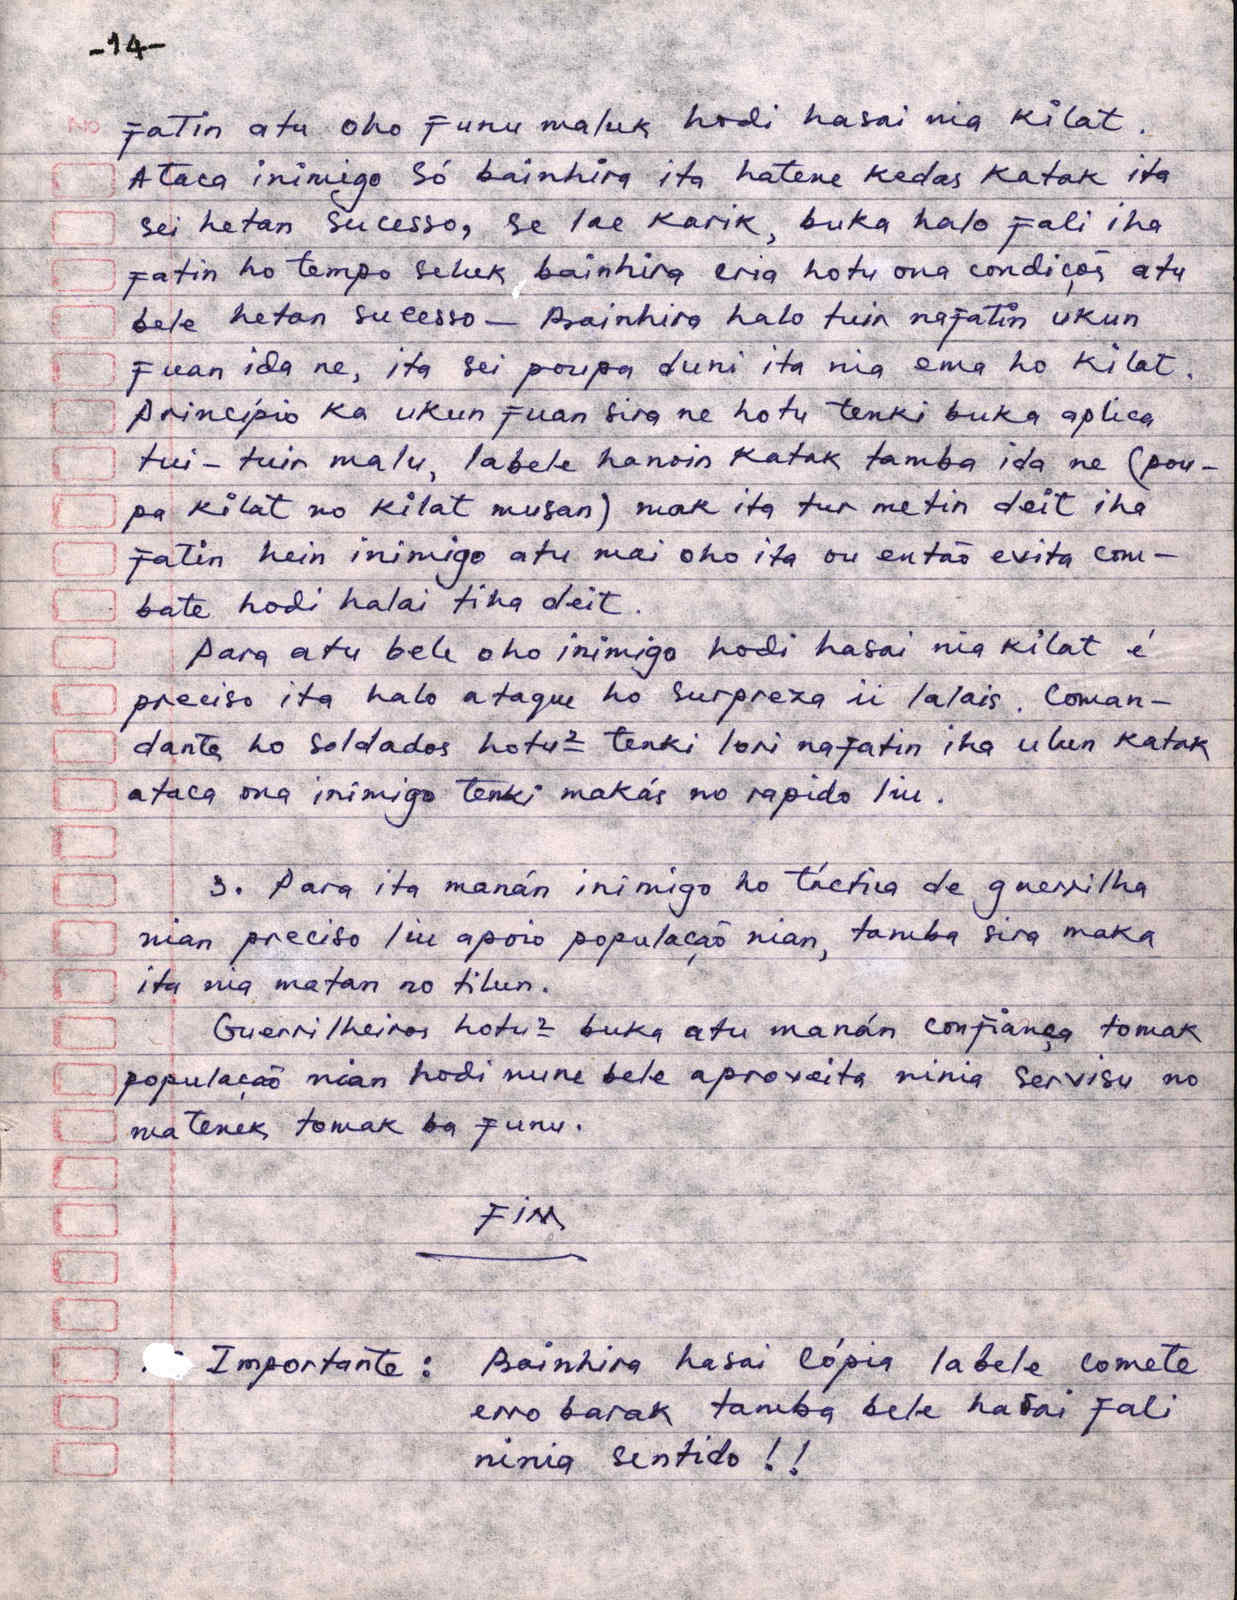 -14-
fatin atu oho funu maluk hodi hasai nia kilat.
Ataca inimigo só bainhira ita hatene kedas katak ita
sei hetan sucesso, se lae karik, buka halo fali iha
fatin ho tempo seluk bainhira cria hotu ona condições atu
bele hetan sucesso — Bainhira halo tuir nafatin ukun
fuan ida ne, ita sei poupa duni ita nia ema ho kilat.
Princípio ka ukun fuan sira ne hotu tenki buka aplica
tui-tuir malu, labele hanoin katak tamba ida ne (pou-
pa kilat no kilat musan) mak ita tur metin deit iha
fatin hein inimigo atu mai oho ita ou então evita com-
bate hodi halai tiha deit.
Para atu bele oho inimigo hodi hasai nia kilat é
preciso ita halo ataque ho surpreza ii lalais. Coman-
dante ho soldados hotu² tenki lori nafatin iha ulun katak
ataca ona inimigo tenki makás no rapido liu.
3. Para ita manán inimigo ho táctica de guerrilha
nian preciso liu apoio população nian, tamba sira maka
ita nia matan no tilun.
Guerrilheiros hotu² buka atu manán confiança tomak
população nian hodi nune bele aproveita ninia servisu no
matenek tomak ba funu.
FIM
Importante: Bainhira hasai cópia labele comete
erro barak tamba bele hasai fali
ninia sentido!!